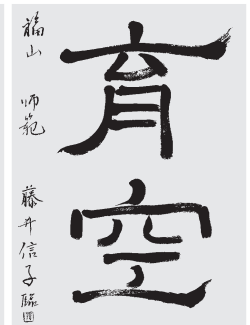 育空
福山 師範 藤井信子臨